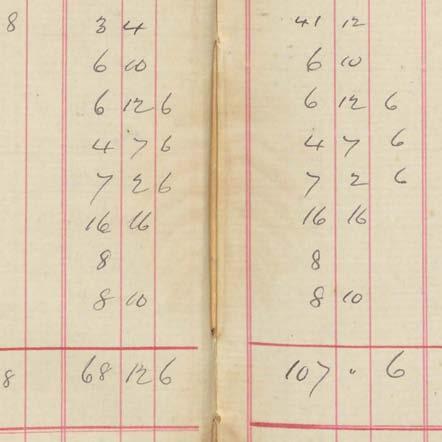 8 3 4
6 10
6 12 6
4 7 6
7 2 6
16 16
8
8 10
8 68 12 6
41 12
6 10
6 12 6
4 7 6
7 2 6
16 16
8
8 10
107 " 6